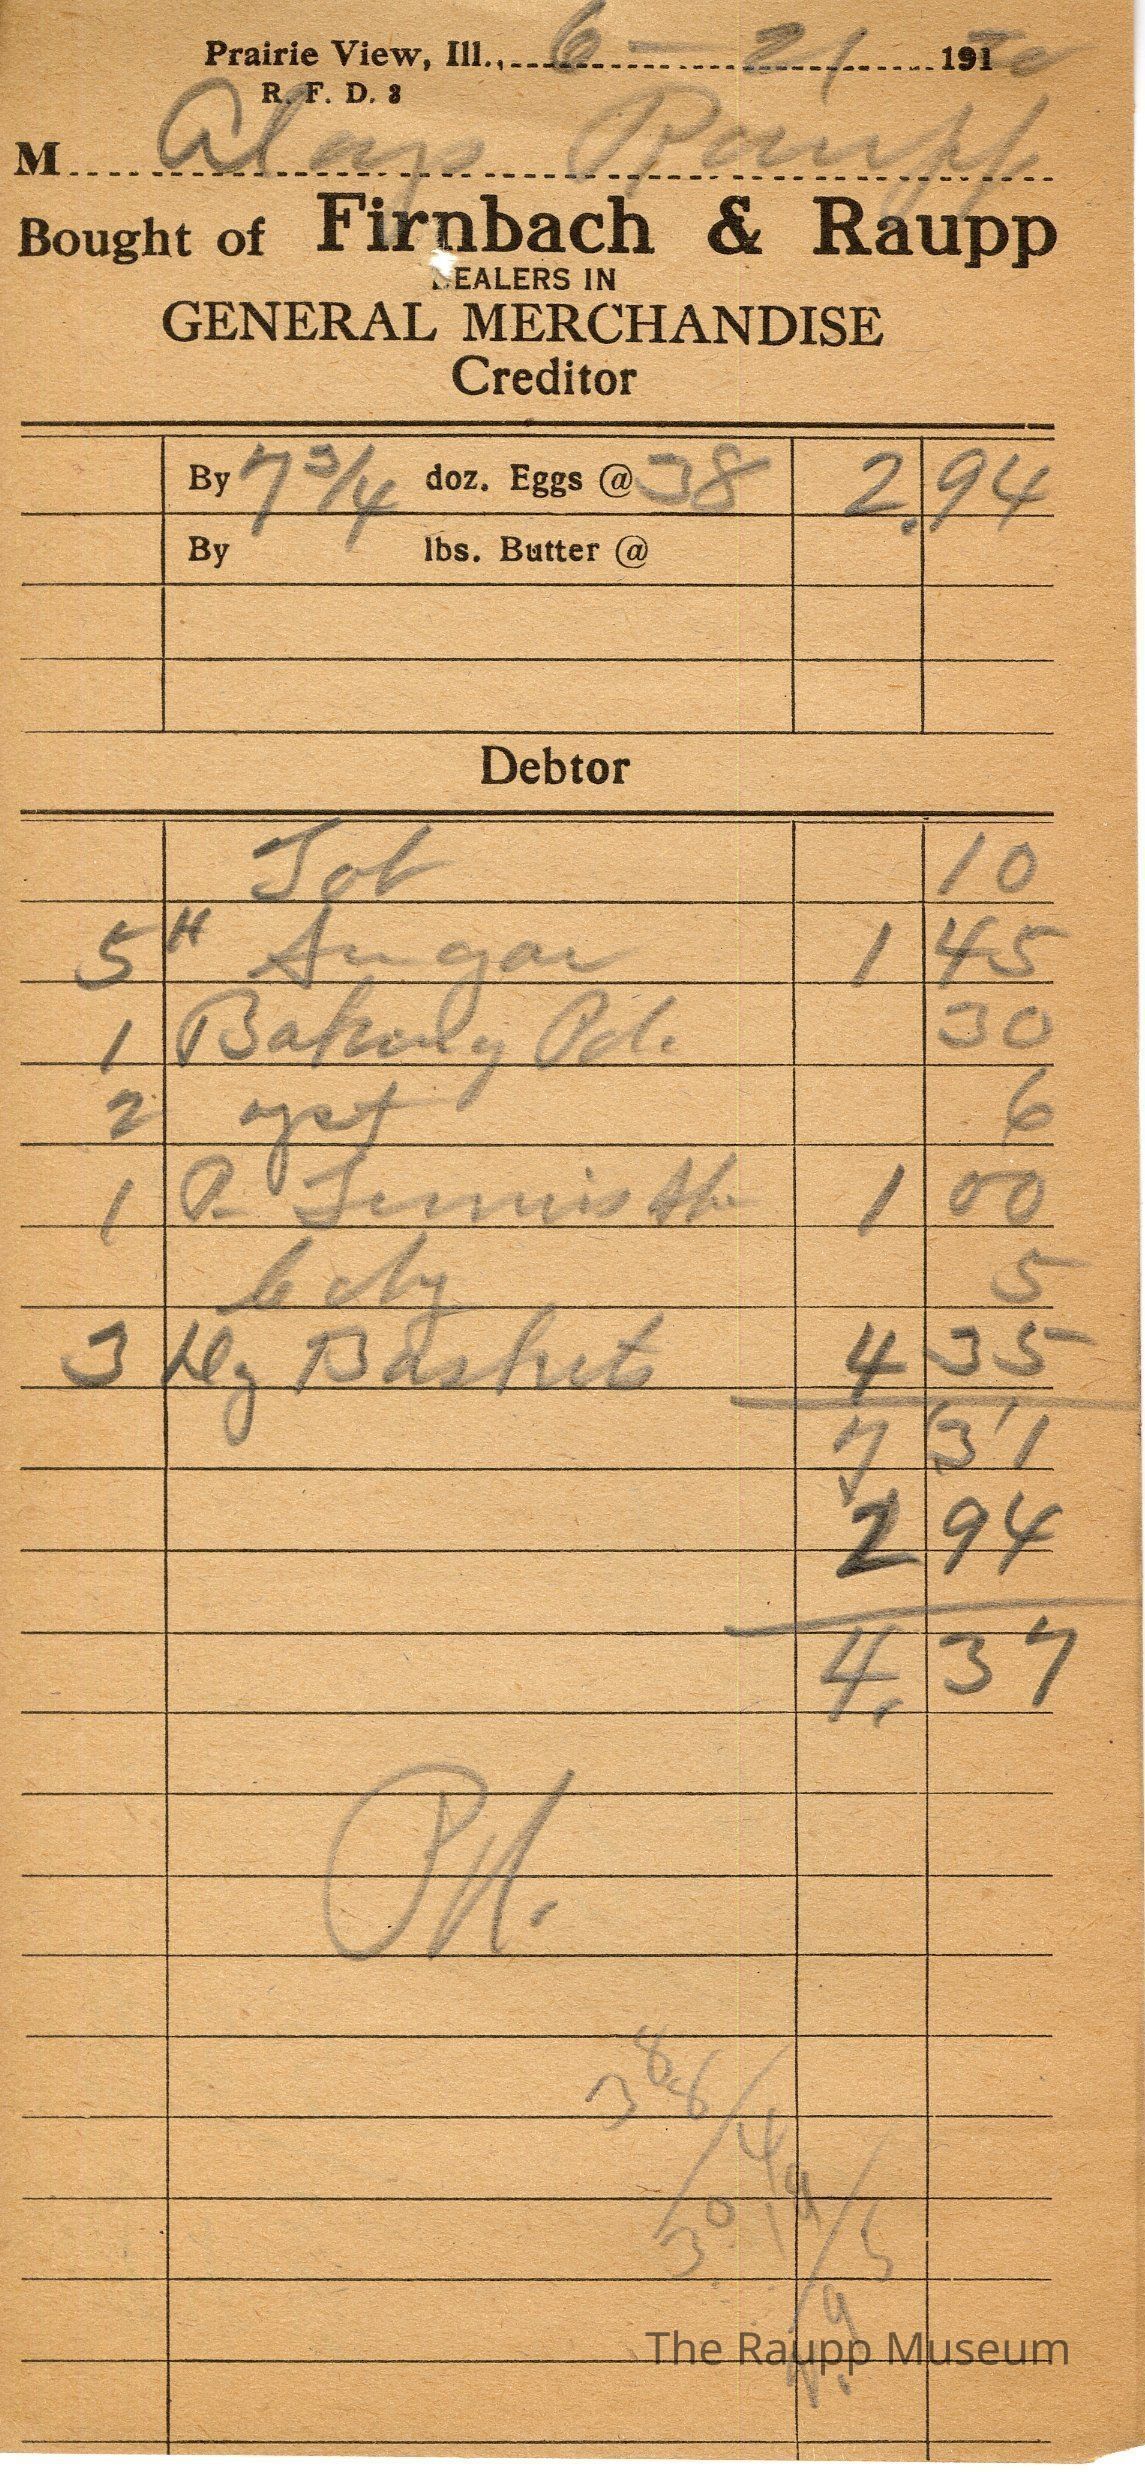 Prairie View, Ill., 6 - 21 191
R. F. D. 3
M Aloys Raupp
Bought of Firnbach & Raupp
DEALERS IN
GENERAL MERCHANDISE
Creditor
By 7 3/4 doz. Eggs @ 38 2.94
By lbs. Butter @
Debtor
Tob 10
5 # Sugar 1 45
1 Baking Pd. 30
2 yst 6
1 P. Tennis Sh 1 00
5
3 Baskets 4 35
7 31
2 94
4. 37
Pd.
The Raupp Museum